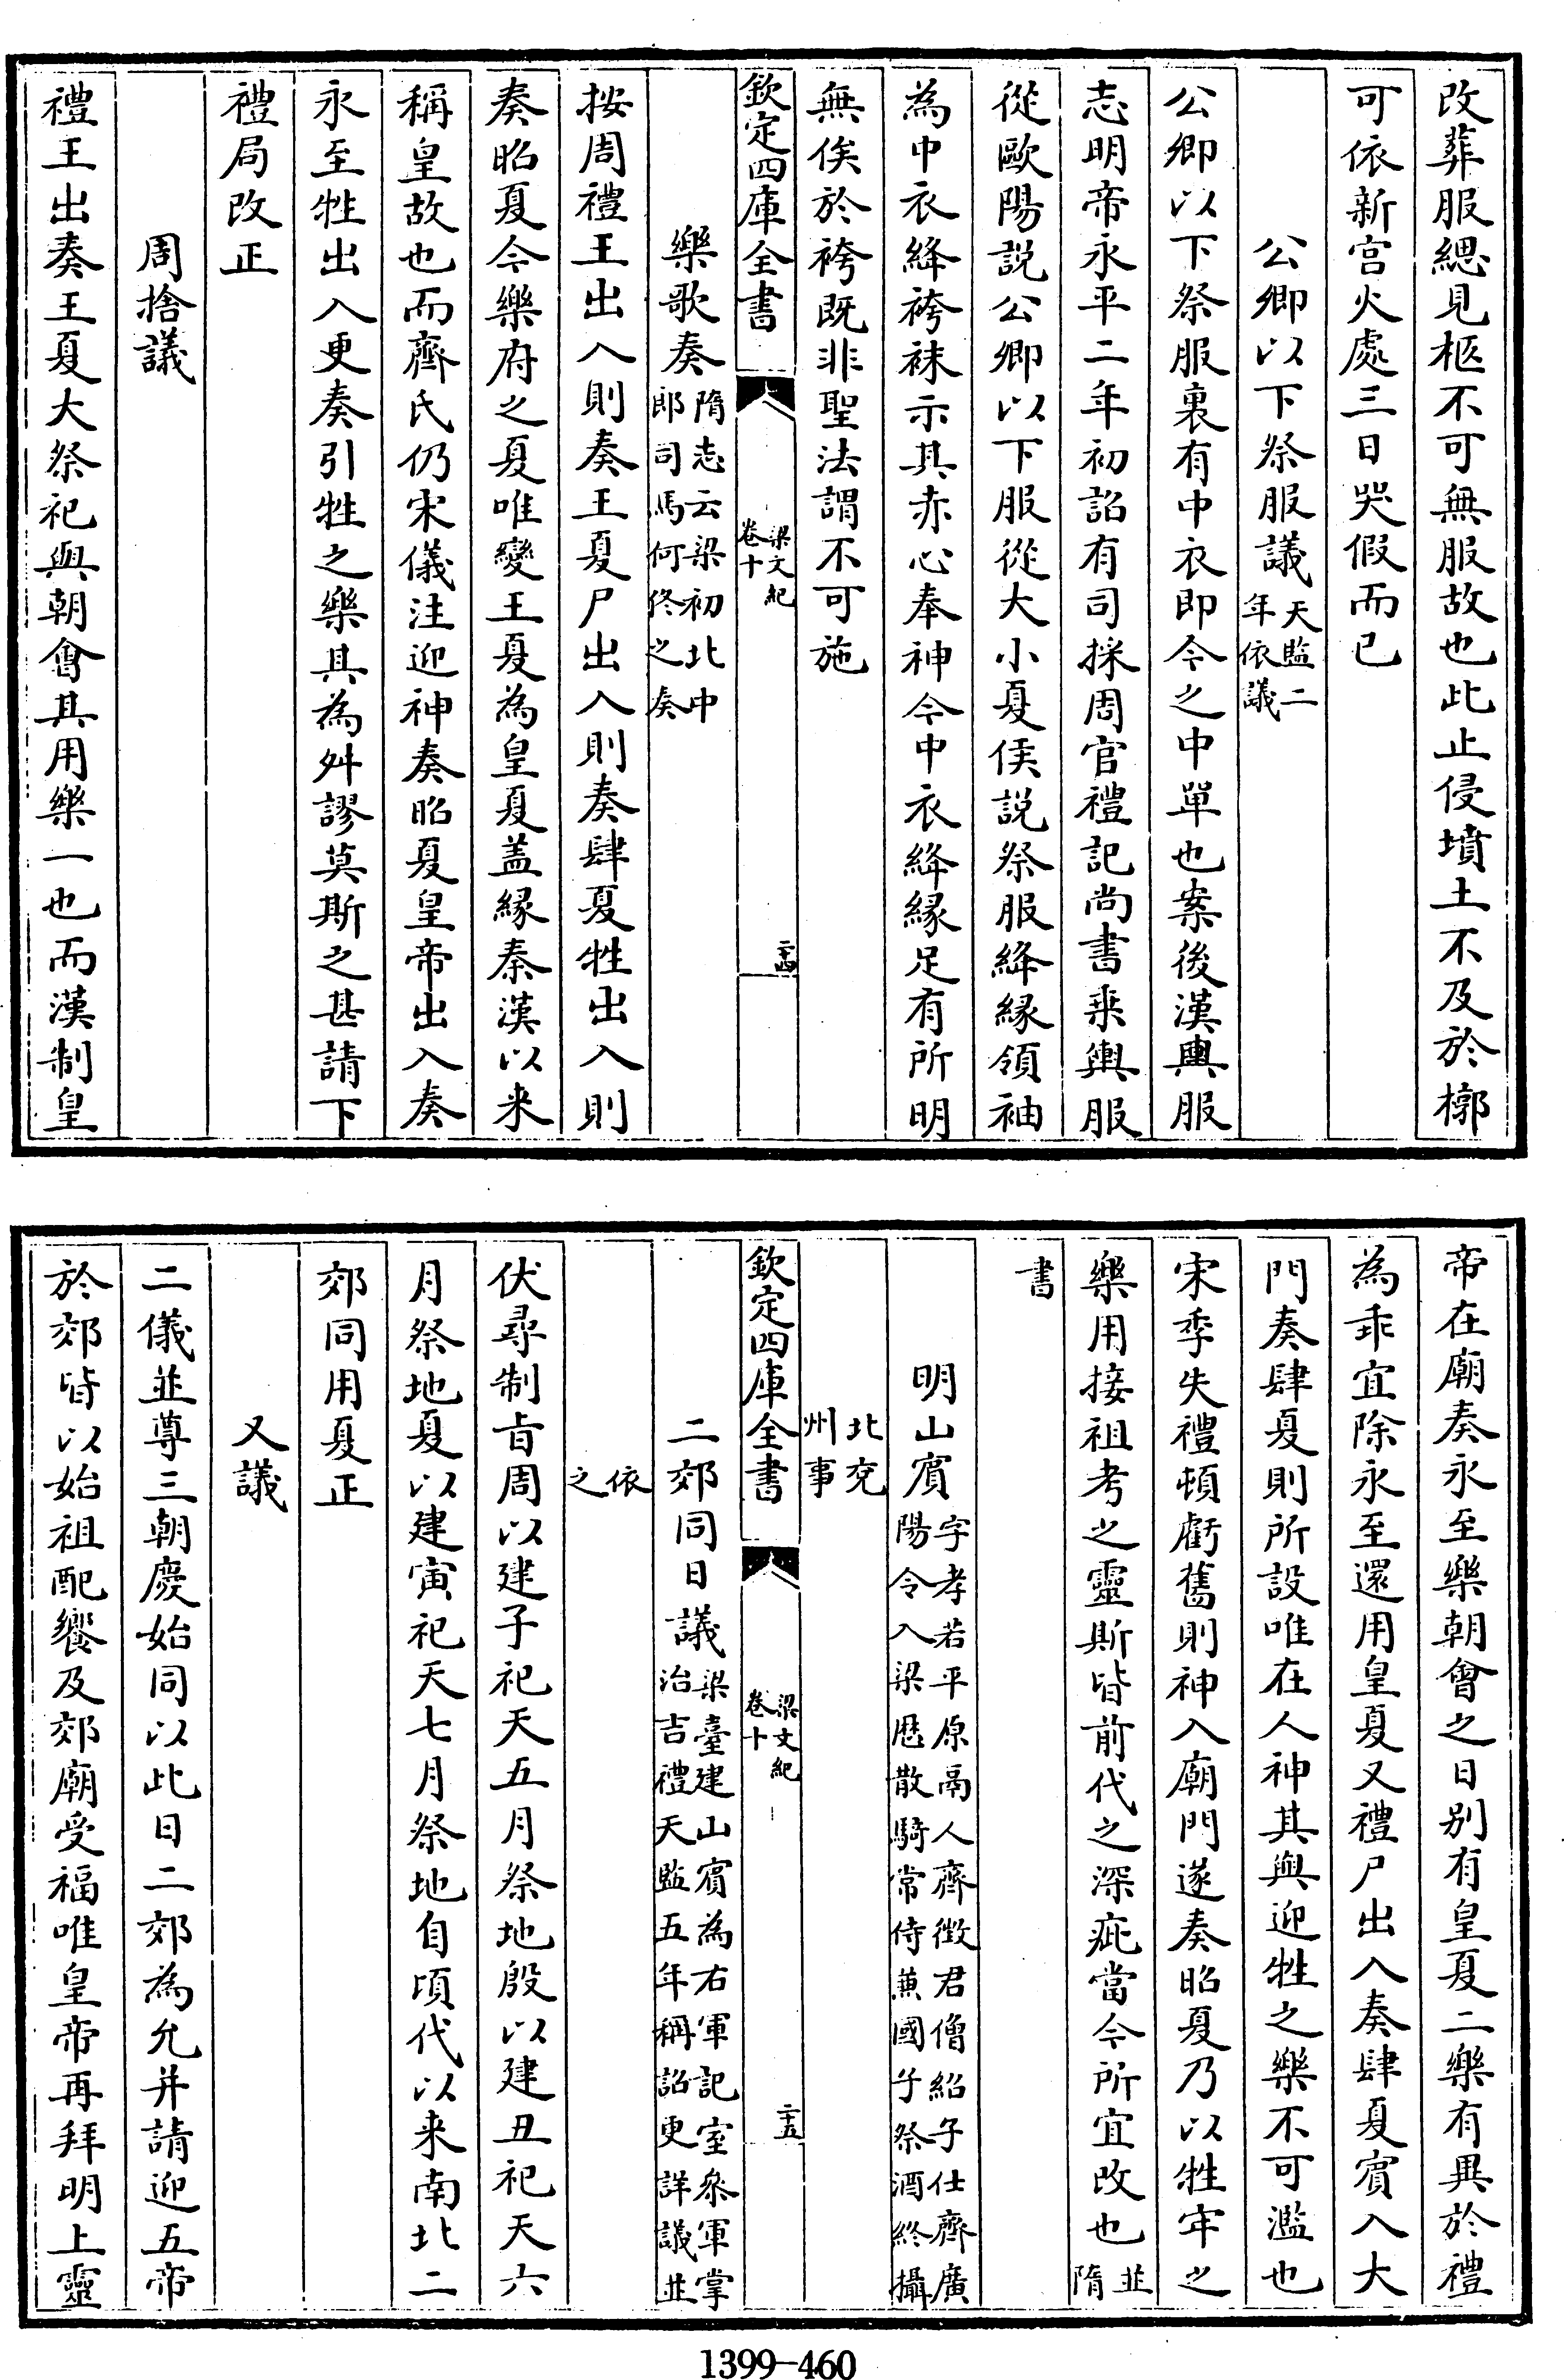 改葬服緦見柩不可無服故也此止侵墳土不及於槨
可依新宫火處三日哭假而已
公卿以下祭服議天監二年依議
公卿以下祭服裏有中衣即今之中單也案後漢輿服
志明帝永平二年初詔有司採周官禮記尚書乗輿服
從歐陽説公卿以下服從大小夏侯説祭服絳緣領袖
為中衣絳袴袜示其赤心奉神今中衣絳緣足有所明
無俟於袴既非聖法謂不可施
欽定四庫全書 梁文紀卷十 二十四
樂歌奏隋志云梁初北中郎司馬何佟之奏
按周禮王出入則奏王夏尸出入則奏肆夏牲出入則
奏昭夏今樂府之夏唯變王夏為皇夏盖緣秦漢以来
稱皇故也而齊氏仍宋儀注迎神奏昭夏皇帝出入奏
永至牲出入更奏引牲之樂其為舛謬莫斯之甚請下
禮局改正
周捨議
禮王出奏王夏大祭祀與朝會其用樂一也而漢制皇
帝在廟奏永至樂朝會之日别有皇夏二樂有異於禮
為乖宜除永至還用皇夏又禮尸出入奏肆夏賓入大
門奏肆夏則所設唯在人神其與迎牲之樂不可濫也
宋季失禮頓虧舊則神入廟門遂奏昭夏乃以牲牢之
樂用接祖考之靈斯皆前代之深疵當今所宜改也並隋
書
明山賓字孝若平原鬲人齊徴君僧紹子仕齊廣陽令入梁厯散騎常侍兼國子祭酒終攝
北兖州事
欽定四庫全書 梁文紀卷十 二十五
二郊同日議梁臺建山賓為右軍記室參軍掌治吉禮天監五年稱詔更詳議並
依之
伏尋制旨周以建子祀天五月祭地殷以建丑祀天六
月祭地夏以建寅祀天七月祭地自頃代以来南北二
郊同用夏正
又議
二儀並尊三朝慶始同以此日二郊為允并請迎五帝
於郊皆以始祖配饗及郊廟受福唯皇帝再拜明上靈
1399-460